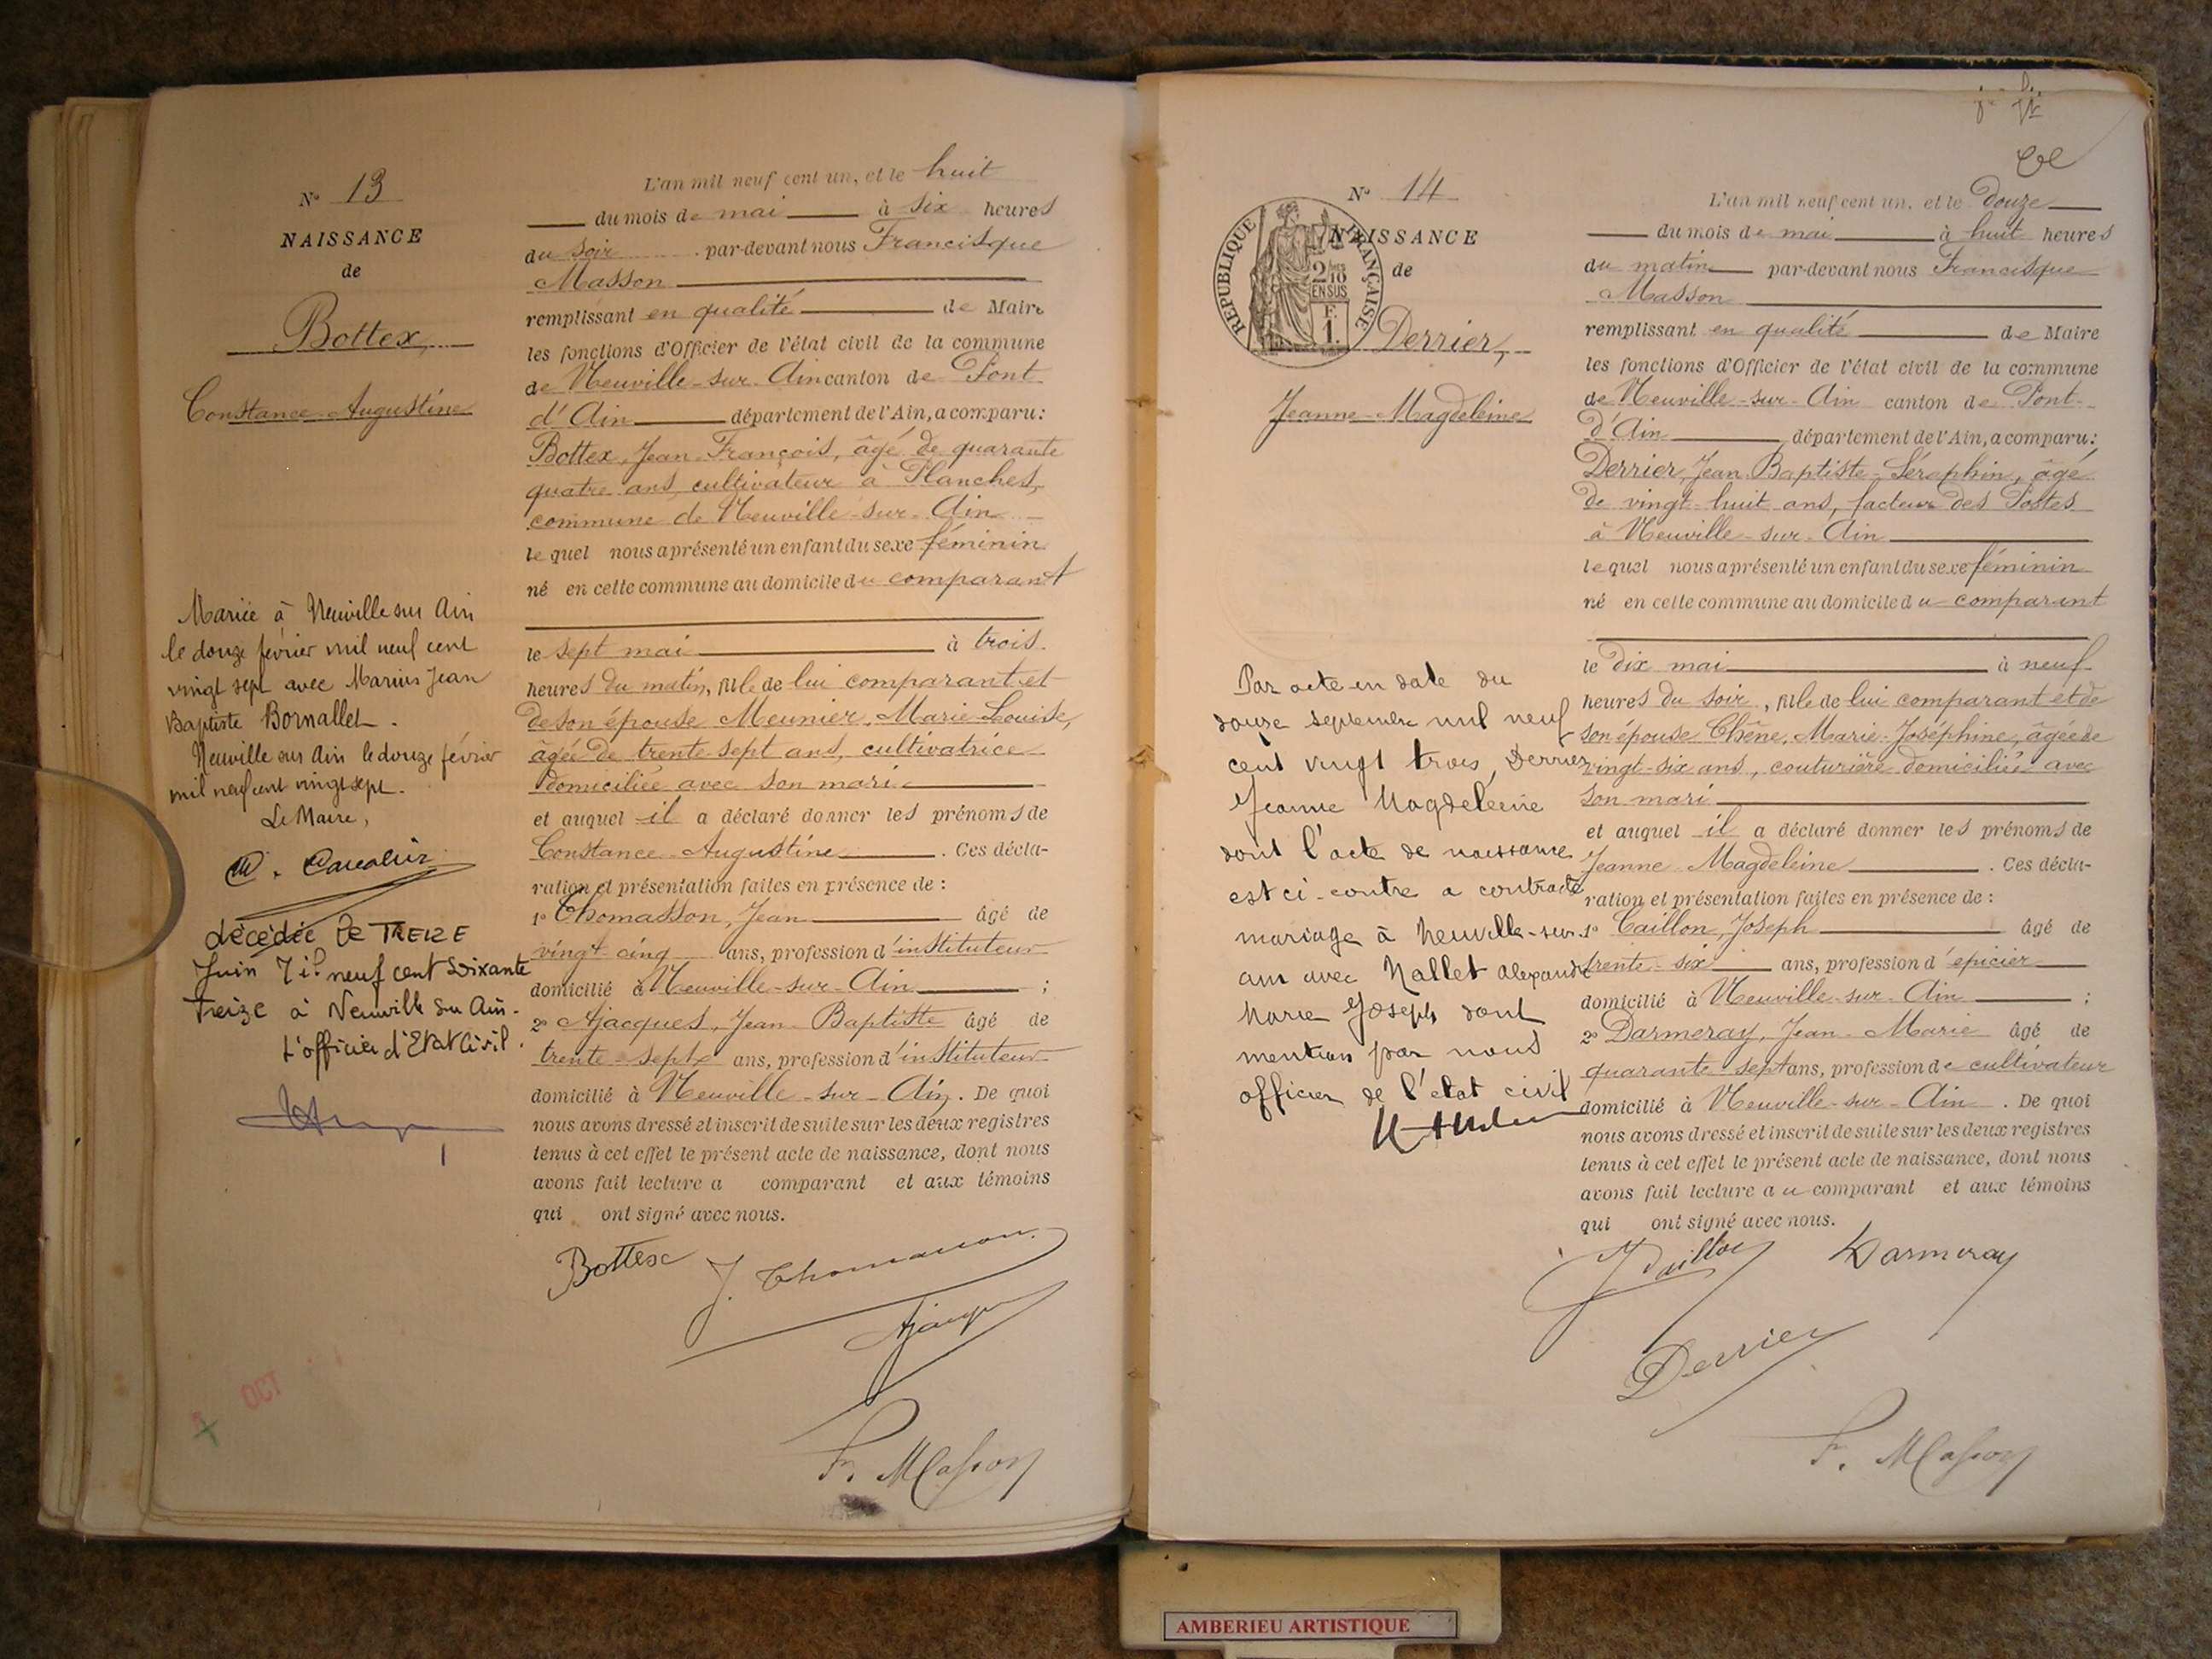 N° 13
NAISSANCE
de
Bottex
Constance Augustine
Mariée à Neuville sur Ain
le douze février mil neuf cent
vingt sept avec Marius Jean
Baptiste Bornallet.
Neuville sur Ain le douze février
mil neuf cent vingt sept.
Le Maire,
décédée le TREIZE
Juin Mil neuf cent Soixante
Treize à Neuville sur Ain.
L'officier d'Etat Civil.
OCT
L'an mil neuf cent un, et le huit
du mois de mai à six heures
du soir par-devant nous Francisque
Masson
remplissant en qualité de Maire
les fonctions d'Officier de l'état civil de la commune
de Neuville-sur-Ain canton de Pont-
d'Ain département de l'Ain, a comparu:
Bottex, Jean-François, âgé de quarante
quatre ans, cultivateur à Planches,
commune de Neuville-sur-Ain
lequel nous a présenté un enfant du sexe féminin
né en cette commune au domicile du comparant
le sept mai à trois
heures du matin, fille de lui comparant et
de son épouse Meunier, Marie-Louise,
âgée de trente-sept ans, cultivatrice
domiciliée avec son mari
et auquel il a déclaré donner les prénoms de
Constance-Augustine. Ces décla-
ration et présentation faites en présence de :
1° Thomasson, Jean âgé de
vingt-cinq ans, profession d'instituteur
domicilié à Neuville-sur-Ain ;
2° Ajacques, Jean-Baptiste âgé de
trente-sept ans, profession d'instituteur
domicilié à Neuville-sur-Ain. De quoi
nous avons dressé et inscrit de suite sur les deux registres
tenus à cet effet le présent acte de naissance, dont nous
avons fait lecture a comparant et aux témoins
qui ont signé avec nous.
Bottex J. Thomasson
Ajacques
Fr. Masson
N° 14
NAISSANCE
de
RÉPUBLIQUE FRANÇAISE
2/10
EN SUS
F.
1.
Derrier,
Jeanne-Magdeleine
Par acte en date du
douze septembre mil neuf
cent vingt trois, Derrier
Jeanne Magdeleine
dont l'acte de naissance
est ci-contre a contracté
mariage à Neuville-sur-
ain avec Nallet alexandre
Marie Joseph dont
mention par nous
officier de l'état civil
L'an mil neuf cent un, et le Douze
du mois de mai à huit heures
du matin par-devant nous Francisque
Masson
remplissant en qualité de Maire
les fonctions d'Officier de l'état civil de la commune
de Neuville-sur-Ain canton de Pont-
d'Ain département de l'Ain, a comparu:
Derrier, Jean-Baptiste-Séraphin, âgé
de vingt-huit ans, facteur des Postes
à Neuville-sur-Ain
lequel nous a présenté un enfant du sexe féminin
né en cette commune au domicile du comparant
le dix mai à neuf
heures du soir, fille de lui comparant et de
son épouse Chêne, Marie-Joséphine, âgée de
vingt-six ans, couturière domiciliée avec
son mari
et auquel il a déclaré donner les prénoms de
Jeanne-Magdeleine. Ces décla-
ration et présentation faites en présence de :
1° Caillon, Joseph âgé de
trente-six ans, profession d'épicier
domicilié à Neuville-sur-Ain ;
2° Darmeray, Jean-Marie âgé de
quarante-sept ans, profession de cultivateur
domicilié à Neuville-sur-Ain. De quoi
nous avons dressé et inscrit de suite sur les deux registres
tenus à cet effet le présent acte de naissance, dont nous
avons fait lecture au comparant et aux témoins
qui ont signé avec nous.
Darmeray
Derrier
Fr. Masson
AMBERIEU ARTISTIQUE